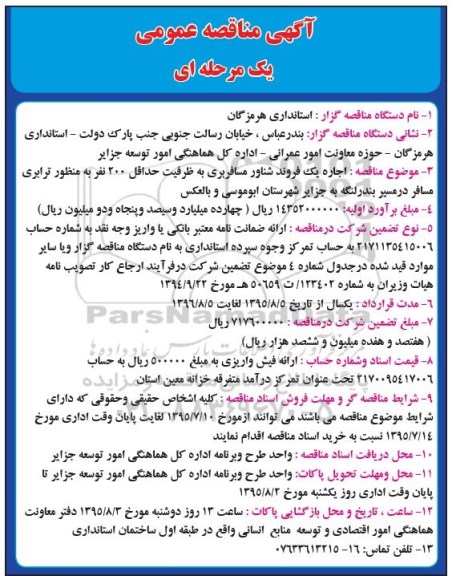 آگهی مناقصه عمومی
یک مرحله ای
۱- نام دستگاه مناقصه گزار : استانداری هرمزگان
۲- نشانی دستگاه مناقصه گزار: بندرعباس ، خیابان رسالت جنوبی جنب پارک دولت - استانداری
هرمزگان - حوزه معاونت امور عمرانی - اداره کل هماهنگی امور توسعه جزایر
۳- موضوع مناقصه : اجاره یک فروند شناور مسافربری به ظرفیت حداقل ۲۰۰ نفر به منظور ترابری
مسافر درمسیر بندرلنگه به جزایر شهرستان ابوموسی و بالعکس
۴- مبلغ برآورد اولیه: ۱۴۳۵۲۰۰۰۰۰۰ ریال ( چهارده میلیارد وسیصد وپنجاه ودو میلیون ریال)
۵- نوع تضمین شرکت درمناقصه : ارائه ضمانت نامه معتبر بانکی یا واریز وجه نقد به شماره حساب
۲۱۷۱۱۳۵۴۱۵۰۰۶ به حساب تمرکز وجوه سپرده استانداری به نام دستگاه مناقصه گزار ویا سایر
موارد قید شده درجدول شماره ۴ موضوع تضمین شرکت درفرآیند ارجاع کار تصویب نامه
هیات وزیران به شماره ۱۲۳۴۰۲/ ت ۵۰۶۵۹ هـ مورخ ۱۳۹۴/۹/۲۲
۶- مدت قرارداد : یکسال از تاریخ ۱۳۹۵/۸/۵ لغایت ۱۳۹۶/۸/۵
۷- مبلغ تضمین شرکت درمناقصه : ۷۱۷۶۰۰۰۰۰ ریال
( هفتصد و هفده میلیون و ششصد هزار ریال)
۸- قیمت اسناد وشماره حساب : ارائه فیش واریزی به مبلغ ۵۰۰۰۰۰ ریال به حساب
۲۱۷۰۰۹۵۴۱۷۰۰۶ تحت عنوان تمرکز درآمد متفرقه خزانه معین استان
۹- شرایط مناقصه گر و مهلت فروش اسناد مناقصه : کلیه اشخاص حقیقی وحقوقی که دارای
شرایط موضوع مناقصه می باشند می توانند ازمورخ ۱۳۹۵/۷/۱۰ لغایت پایان وقت اداری مورخ
۱۳۹۵/۷/۱۴ نسبت به خرید اسناد مناقصه اقدام نمایند
۱۰- محل دریافت اسناد مناقصه : واحد طرح وبرنامه اداره کل هماهنگی امور توسعه جزایر
۱۱- محل ومهلت تحویل پاکات: واحد طرح وبرنامه اداره کل هماهنگی امور توسعه جزایر تا
پایان وقت اداری روز یکشنبه مورخ ۱۳۹۵/۸/۲
۱۲- ساعت ، تاریخ و محل بازگشایی پاکات : ساعت ۱۳ روز دوشنبه مورخ ۱۳۹۵/۸/۳ دفتر معاونت
هماهنگی امور اقتصادی و توسعه منابع انسانی واقع در طبقه اول ساختمان استانداری
۱۳- تلفن تماس: ۱۶- ۰۷۶۳۳۶۱۳۲۱۵
ParsNamadData